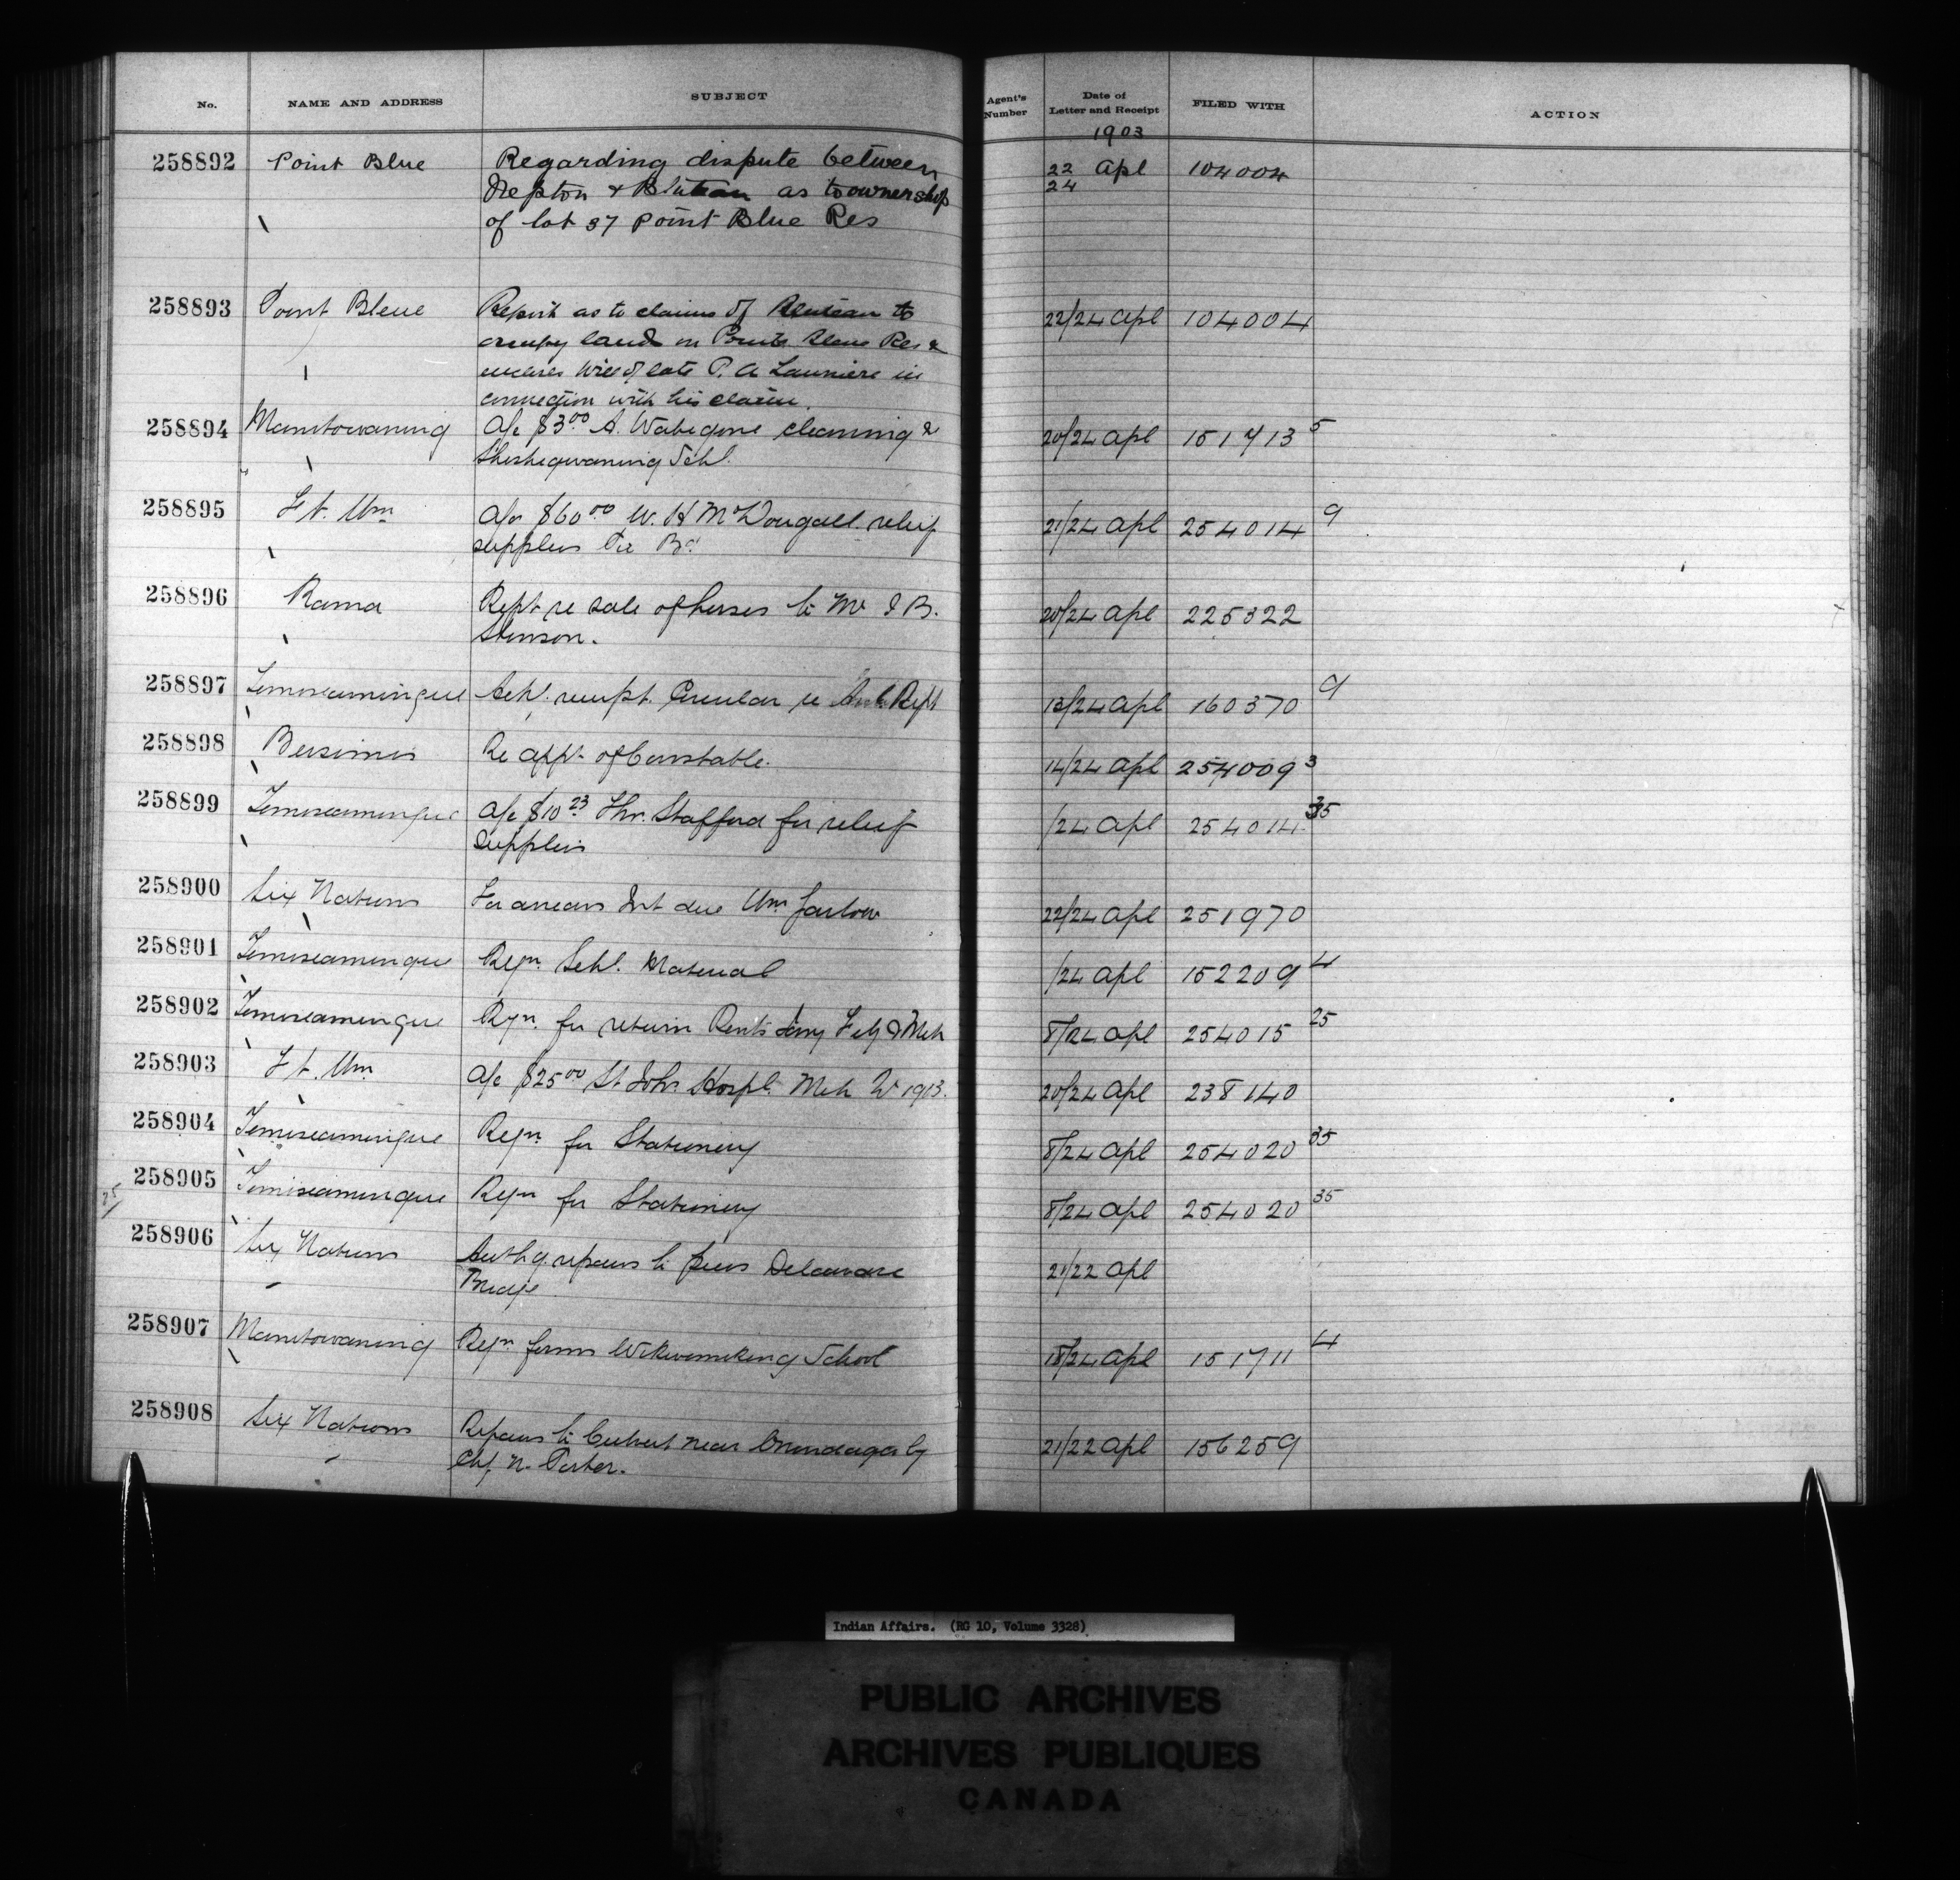 No. NAME AND ADDRESS SUBJECT Agent's Number Date of Letter and Receipt FILED WITH ACTION
1903
258892 Point Blue Regarding dispute between 22/24 Apl 104004
& as to ownership
of lot 37 Point Blue Res
258893 Point Bleue Report as to claims of to 22/24 Apl 104004
occupy land on Pointe Bleue Res &
will of late P. A. Launiere in
connection with his claim.
258894 Manitowaning A/c $3.00 A. Wabegone cleaning & 20/24 Apl 151713 5
Sheshegwaning Schl.
258895 Ft. Wm A/c $60.00 W. H McDougall relief 21/24 Apl 254014 9
supplies Pic Bd
258896 Rama Rept re sale of horses to Mr B. 20/24 Apl 225322
Stinson.
258897 Temiscamingue Ackl. receipt. Circular re Rept 13/24 Apl 160370 9
258898 Bersimis Re appt of Constable. 14/24 Apl 254009 3
258899 Temiscamingue A/c $10.23 Thos. Stafford for relief /24 Apl 254014 35
supplies
258900 Six Nations For arrears Int due Wm 22/24 Apl 251970
258901 Temiscamingue Reqn. Schl. Material /24 Apl 152209 4
258902 Temiscamingue Reqn. for return Rents Jany Feby & Mch 8/24 Apl 254015 25
258903 Ft. Wm A/c $25.00 St Johs. Hospl. Mch 1903. 20/24 Apl 238140
258904 Temiscamingue Reqn for Stationery 8/24 Apl 254020 35
258905 Temiscamingue Reqn for Stationery 8/24 Apl 254020 35
25
258906 Six Nations Authy. repairs to piers Delaware 21/22 Apl
Bridge
258907 Manitowaning Reqn forms Wikwemikong School 18/24 Apl 151711 4
258908 Six Nations Repairs to Culvert near Onondaga by 21/22 Apl 156259
Chf. N. Porter.
Indian Affairs. (RG 10, Volume 3328)
PUBLIC ARCHIVES
ARCHIVES PUBLIQUES
CANADA